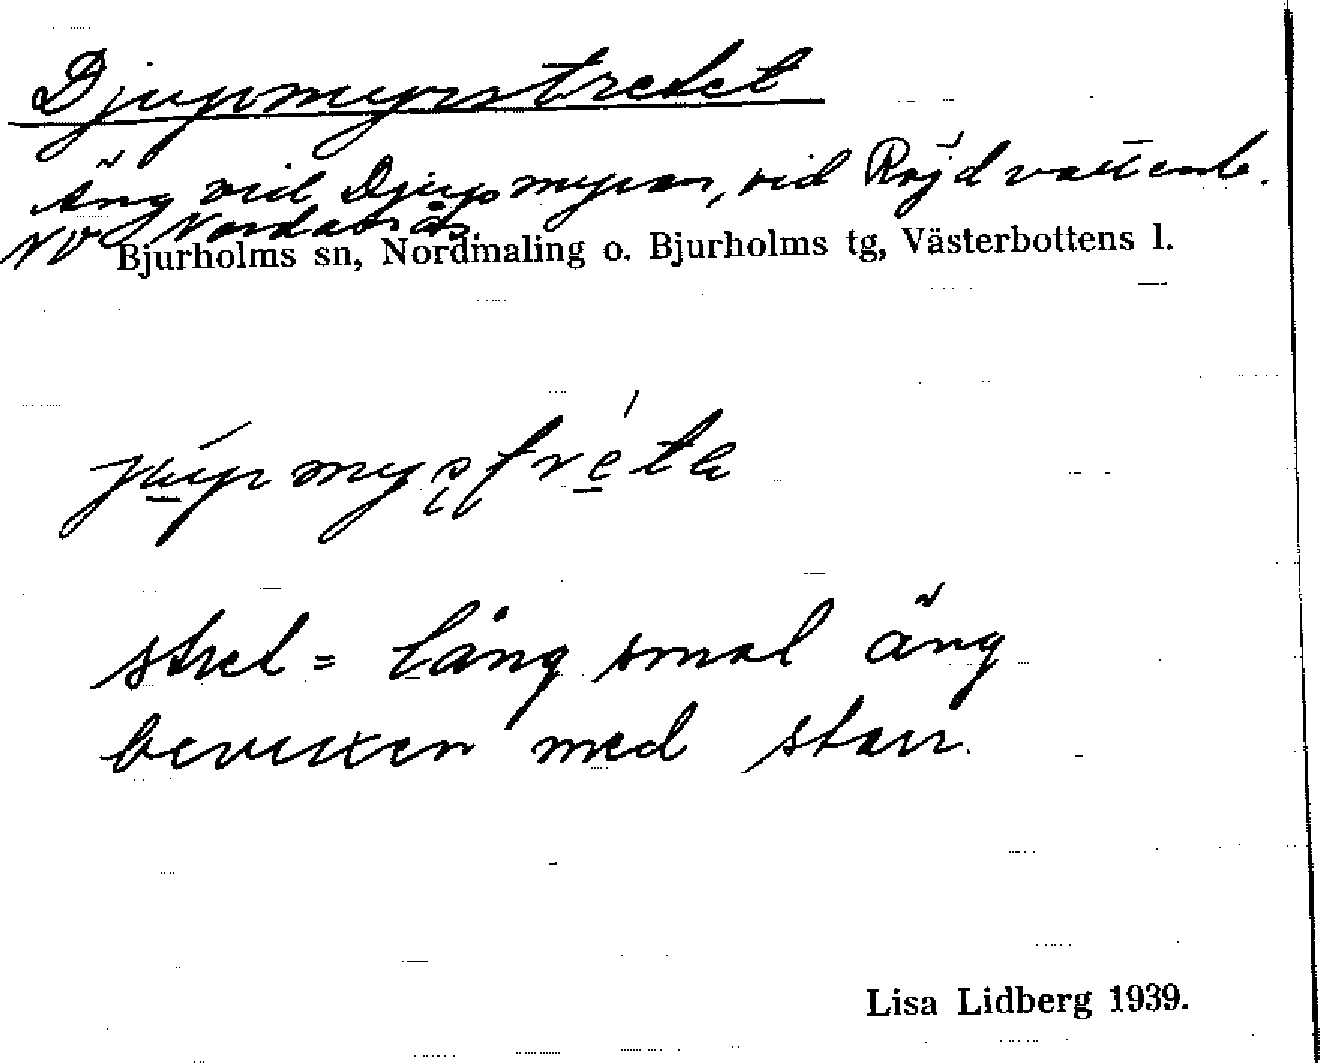 Djupmyrstredet
Äng vid Djupmyran, vid Röjdvattenb.
NV Nordanås.
Bjurholms sn, Nordmaling o. Bjurholms tg, Västerbottens l.
stret = lång smal äng
bevuxen med starr.
Lisa Lidberg 1939.